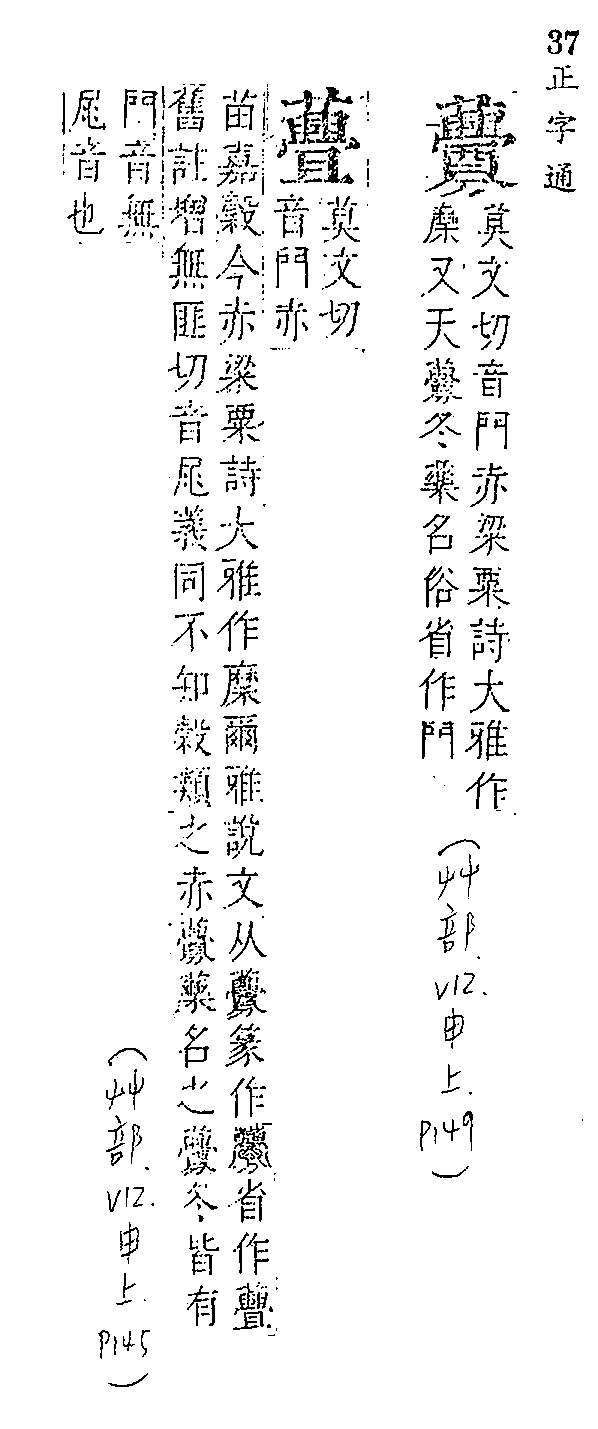 37
正字通
虋
莫文切音門赤粱粟詩大雅作
穈又天虋冬藥名俗省作門
(艸部. V12. 申上. P149)
莫文切
音門赤
苗嘉穀今赤粱粟詩大雅作穈爾雅說文从虋篆作省作
舊註增無匪切音尾義同不知穀類之赤虋藥名之虋冬皆有
門音無
尾音也
(艸部. V12. 申上. P145)